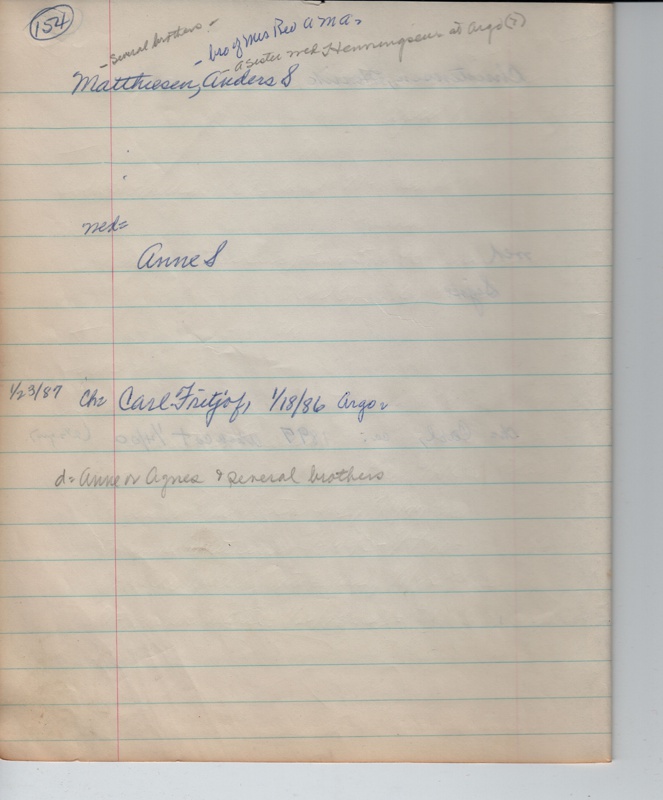 154
- Several brothers -
- bro of Mrs Rev A M A.
- a sister med Henningsen at Argo (?)
Matthiesen, Anders S
med=
Anne S
1/23/87 Ch= Carl Fritjof, 1/18/86 Argo.
d= Anne or Agnes & several brothers